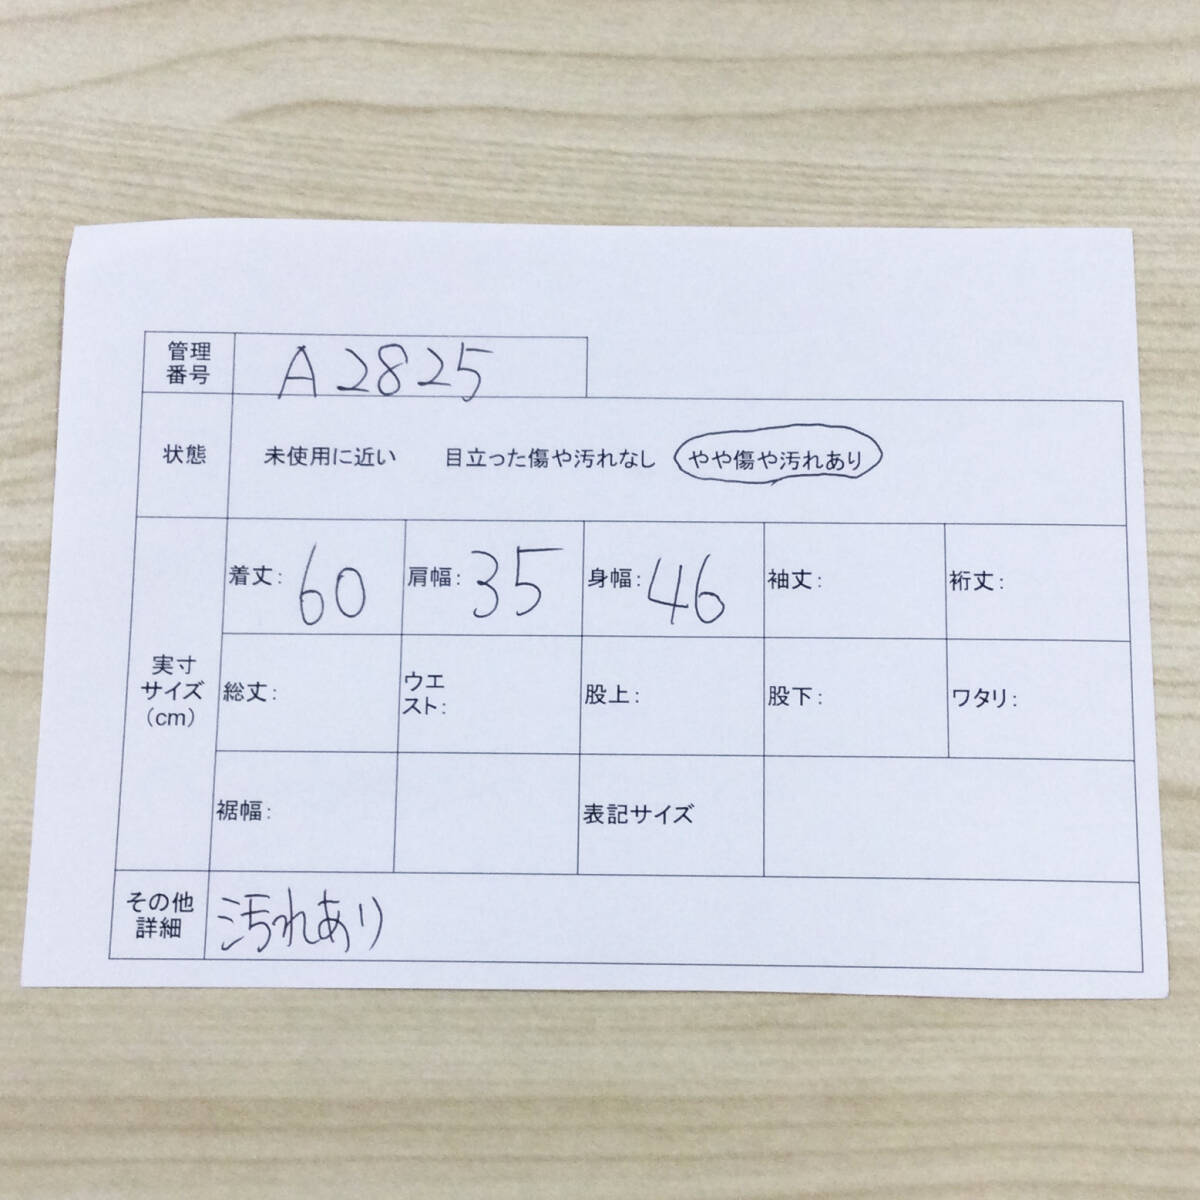 管理
番号
A2825
状態
未使用に近い 目立った傷や汚れなし やや傷や汚れあり
実寸
サイズ
(cm)
着丈: 60 肩幅: 35 身幅: 46 袖丈: 裄丈:
総丈: ウエ
スト: 股上: 股下: ワタリ:
裾幅: 表記サイズ
その他
詳細
汚れあり